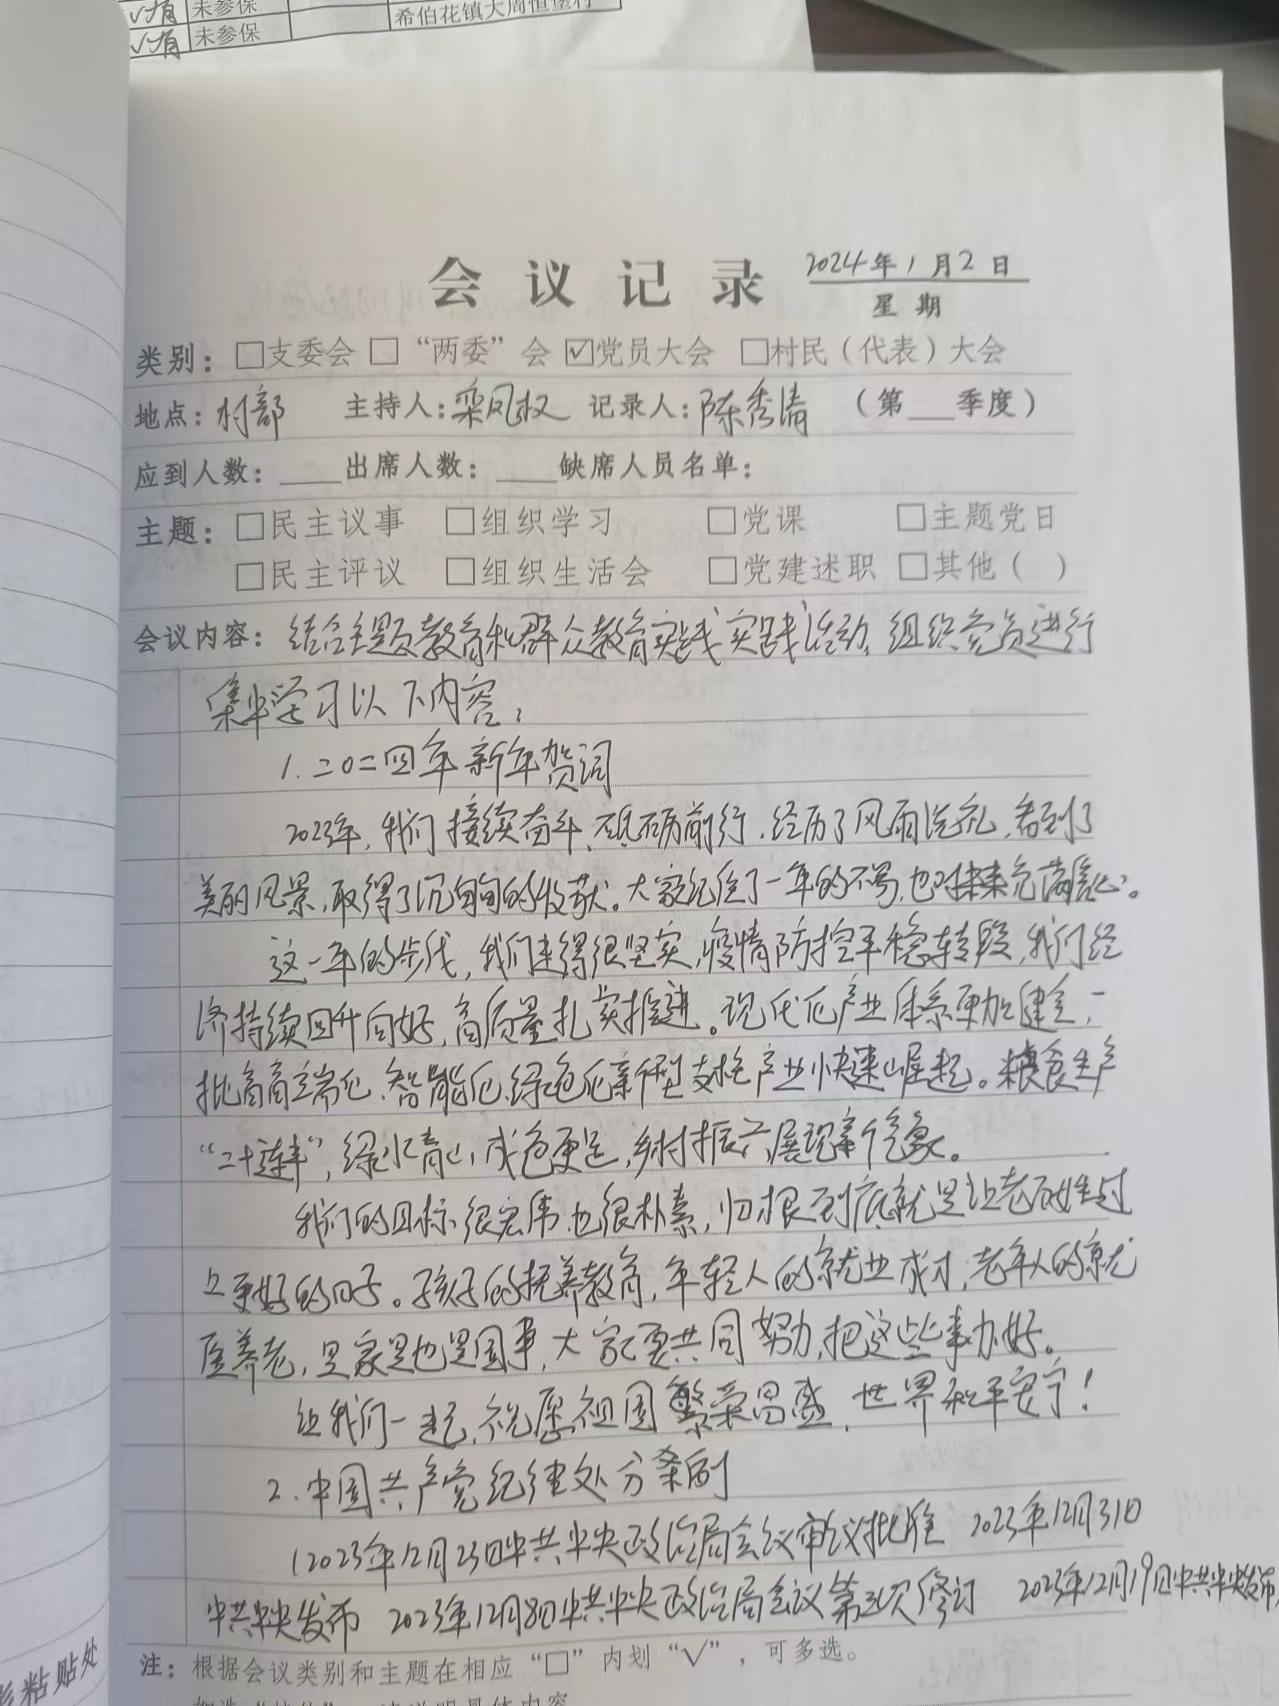 √有 未参保 希伯花镇大周恒堡村
√有 未参保
会议记录 2024年1月2日
星期
类别：□支委会 □“两委”会 ☑党员大会 □村民（代表）大会
地点：村部 主持人：栾凤权 记录人：陈秀清 （第 季度）
应到人数： 出席人数： 缺席人员名单：
主题：□民主议事 □组织学习 □党课 □主题党日
□民主评议 □组织生活会 □党建述职 □其他（ ）
会议内容：结合主题教育和群众教育实践实践活动，组织党员进行
集中学习以下内容：
1.二0二四年新年贺词
2023年，我们接续奋斗、砥砺前行，经历了风雨洗礼，看到了
美丽风景，取得了沉甸甸的收获。大家记住了一年的不易，也对未来充满信心。
这一年的步伐，我们走得很坚实，疫情防控平稳转段，我们经
济持续回升向好，高质量扎实推进。现代化产业体系更加健全，一
批高高端化、智能化、绿色化新型支柱产业快速崛起。粮食生产
“二十连丰”，绿水青山，成色更足，乡村振兴展现新气象。
我们的目标很宏伟，也很朴素，归根到底就是让老百姓过
上更好的日子。孩子的抚养教育，年轻人的就业成才，老年人的就
医养老，是家是也是国事，大家要共同努力，把这些事办好。
让我们一起，祝愿祖国繁荣昌盛，世界和平安宁！
2.中国共产党纪律处分条例
（2023年12月23日中共中央政治局会议审议批准 2023年12月31日
中共中央发布 2023年12月8日中共中央政治局会议第3次修订 2023年12月19日中共中央发布
注：根据会议类别和主题在相应“□”内划“√”，可多选。
粘贴处